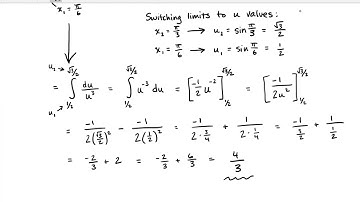 x₁ = π/6
Switching limits to u values:
x₂ = π/3 → u₂ = sin π/3 = √3/2
x₁ = π/6 → u₁ = sin π/6 = 1/2
= ∫_{u₁ 1/2}^{u₂ √3/2} du/u³ = ∫_{1/2}^{√3/2} u⁻³ du = [-1/2 u⁻²]_{1/2}^{√3/2} = [-1/2u²]_{1/2}^{√3/2}
= -1/2(√3/2)² - -1/2(1/2)² = -1/2·3/4 + 1/2·1/4 = -1/(3/2) + 1/(1/2)
= -2/3 + 2 = -2/3 + 6/3 = 4/3